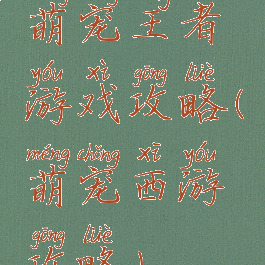 萌宠王者
yóu xì gōng lüè
游戏攻略(
méng chǒng xī yóu
萌宠西游
gōng lüè
攻略)